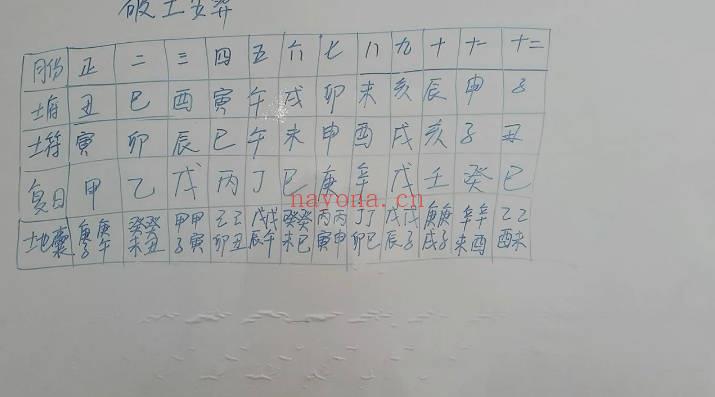 破土安葬
月份 正 二 三 四 五 六 七 八 九 十 十一 十二
土府 丑 巳 酉 寅 午 戌 卯 未 亥 辰 申 子
土符 寅 卯 辰 巳 午 未 申 酉 戌 亥 子 丑
复日 甲 乙 戊 丙 丁 巳 庚 辛 戊 壬 癸 巳
地囊 庚子 庚午 癸未 癸丑 甲子 甲寅 乙卯 乙丑 戊辰 戊午 癸未 癸巳 丙寅 丙申 丁卯 丁巳 戊辰 戊子 庚戌 庚子 辛未 辛酉 乙酉 乙未
navona.cn